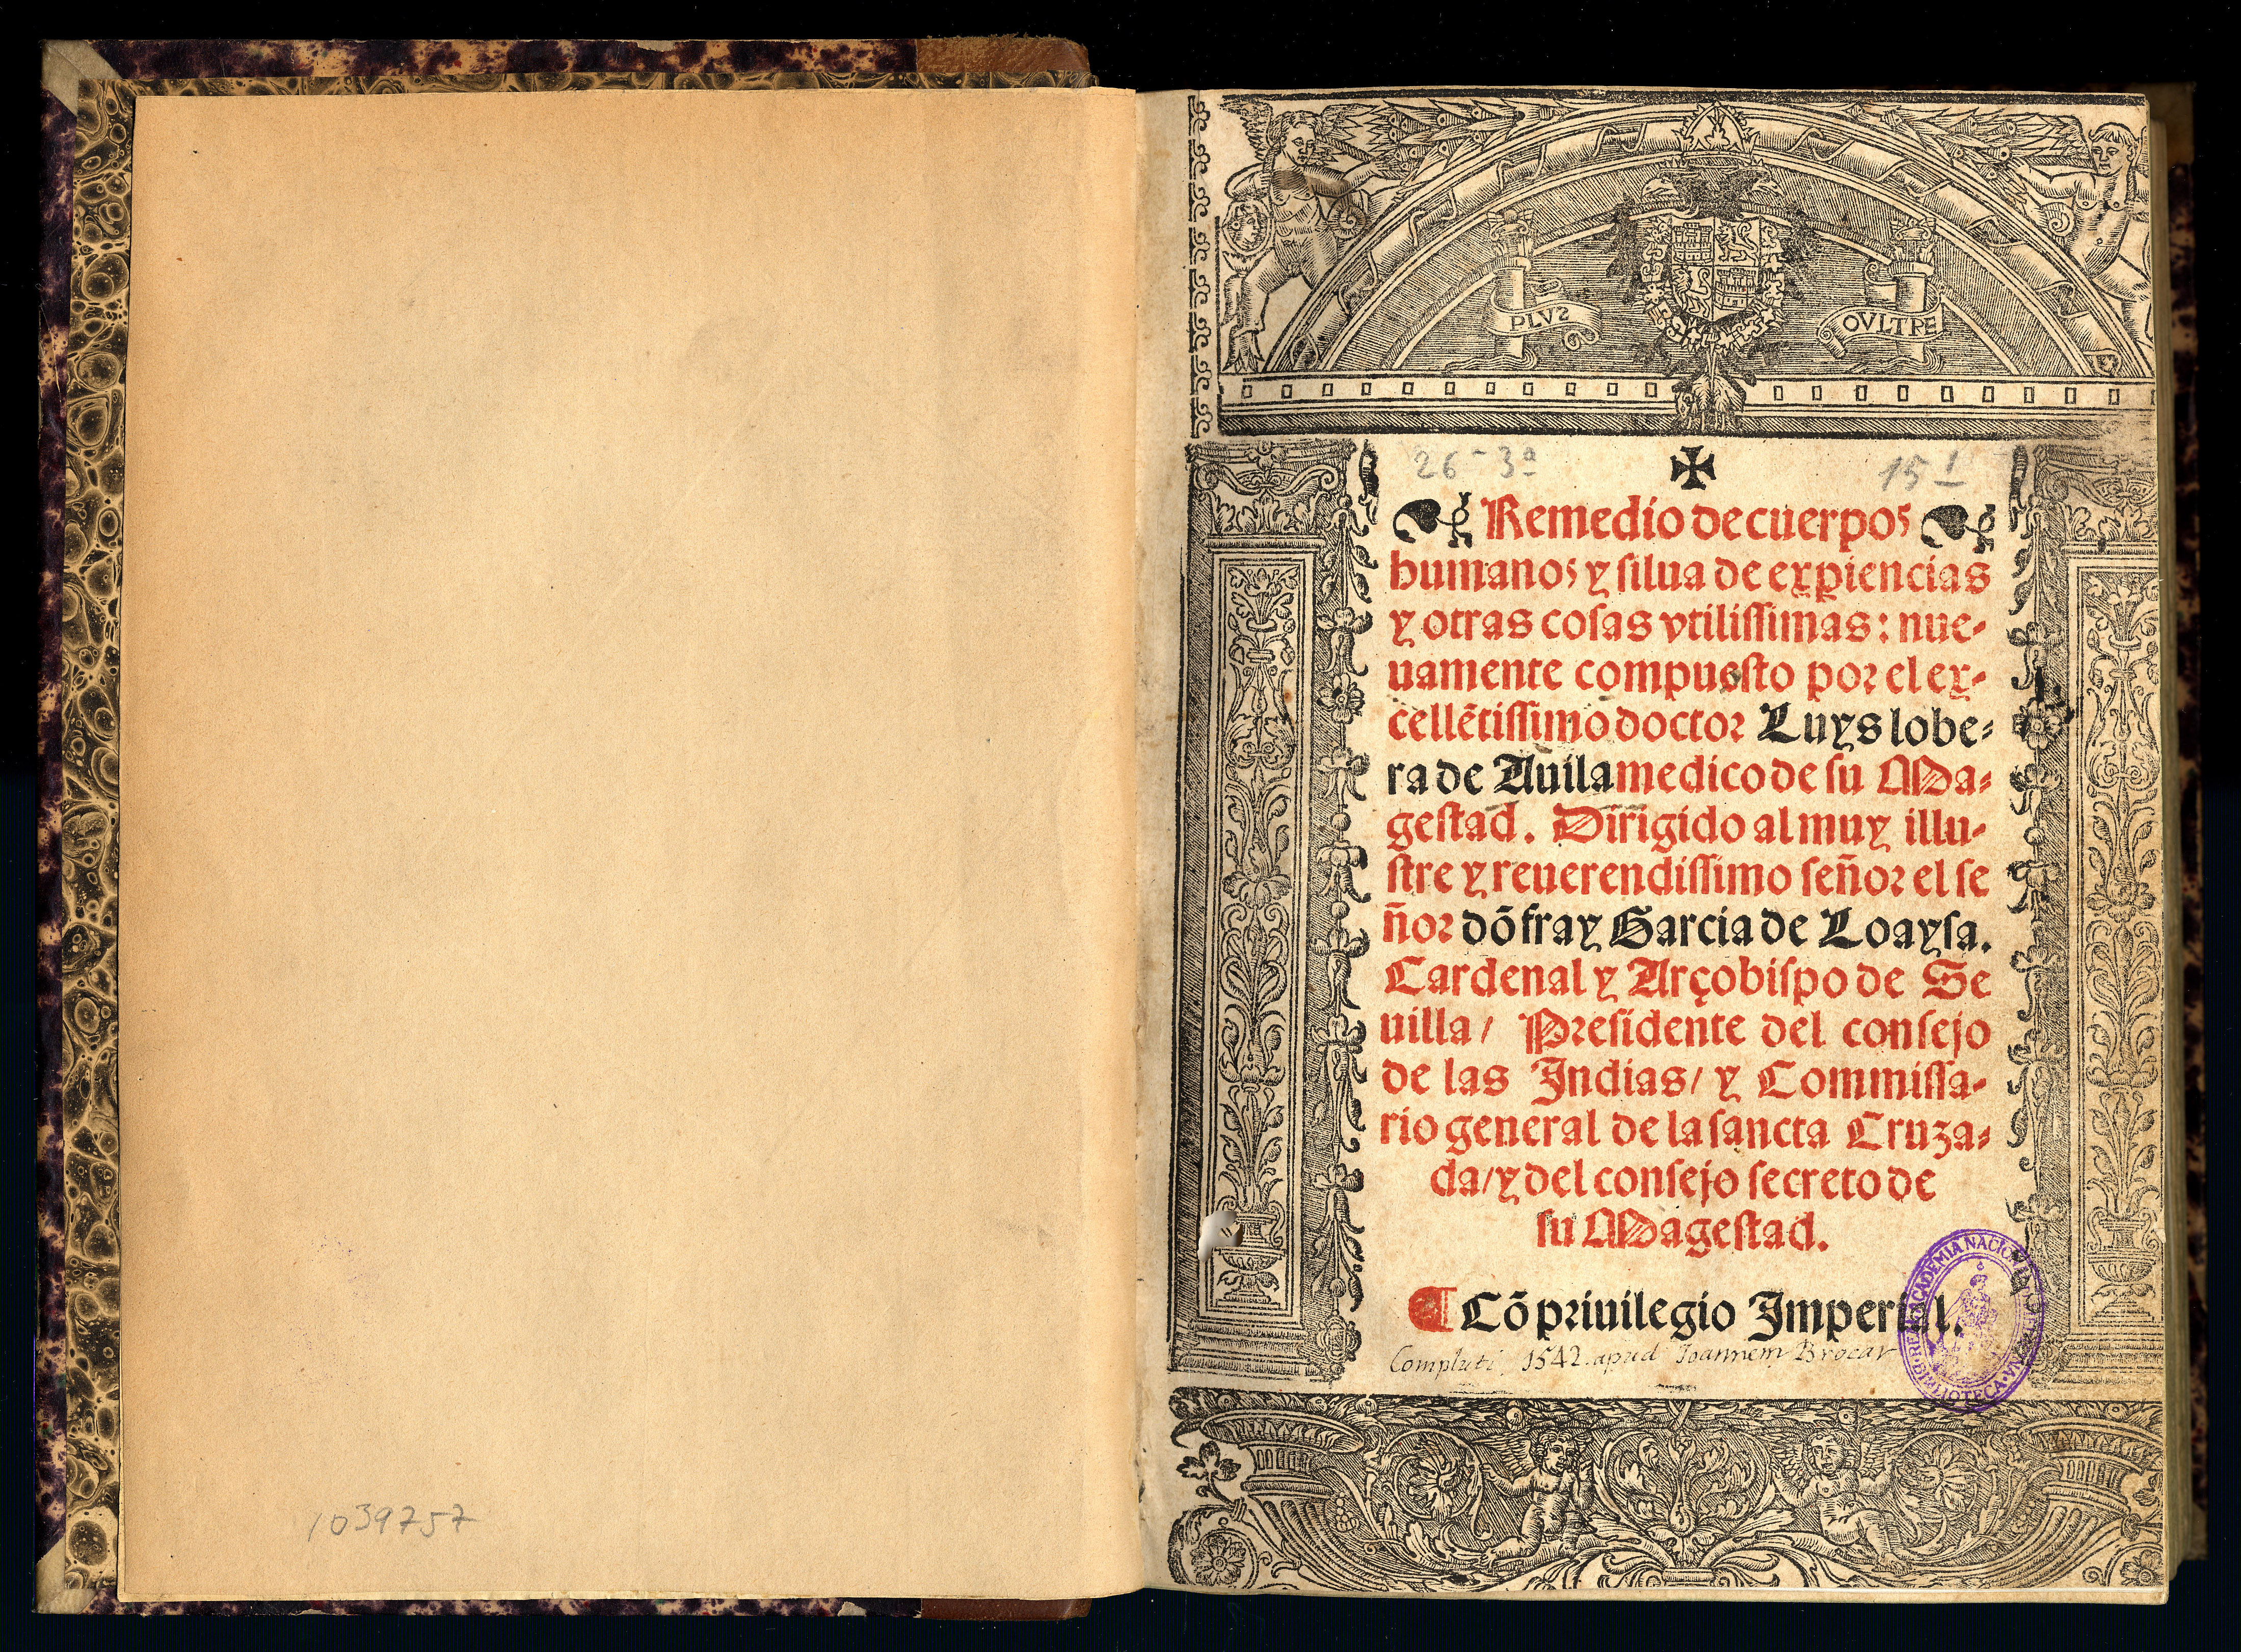 1039757
PLVS
OVLTRE
26-3ª
15 1
Remedio de cuerpos
humanos y silua de exꝑiencias
y otras cosas vtilissimas: nue-
uamente compuesto por el ex-
cellẽtissimo doctor Luys lobe-
ra de Auila medico de su Ma-
gestad. Dirigido al muy illu-
stre y reuerendissimo señor el se
ñor dõ fray Garcia de Loaysa.
Cardenal y Arçobispo de Se
uilla/ Presidente del consejo
de las Indias/ y Commissa-
rio general de la sancta Cruza-
da/ y del consejo secreto de
su Magestad.
¶ Cõ priuilegio Imperial.
Compluti, 1542. apud Joannem Brocar
ACADEMIA NACIONAL
BIBLIOTECA